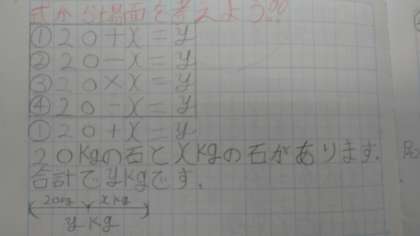 式から場面を考えよう。
①20+x=y
②20-x=y
③20×x=y
④20-x=y
①20+x=y
20kgの石とxkgの石があります.
合計でykgです.
20kg xkg
ykg